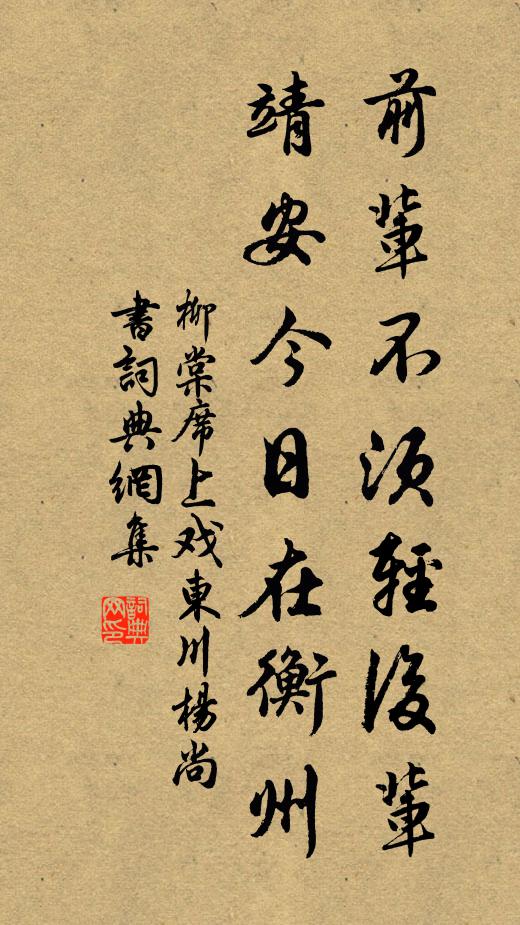 前輩不須輕後輩
靖安今日在衡州
柳棠席上戏東川楊尚
書詞典網集
詞典网印